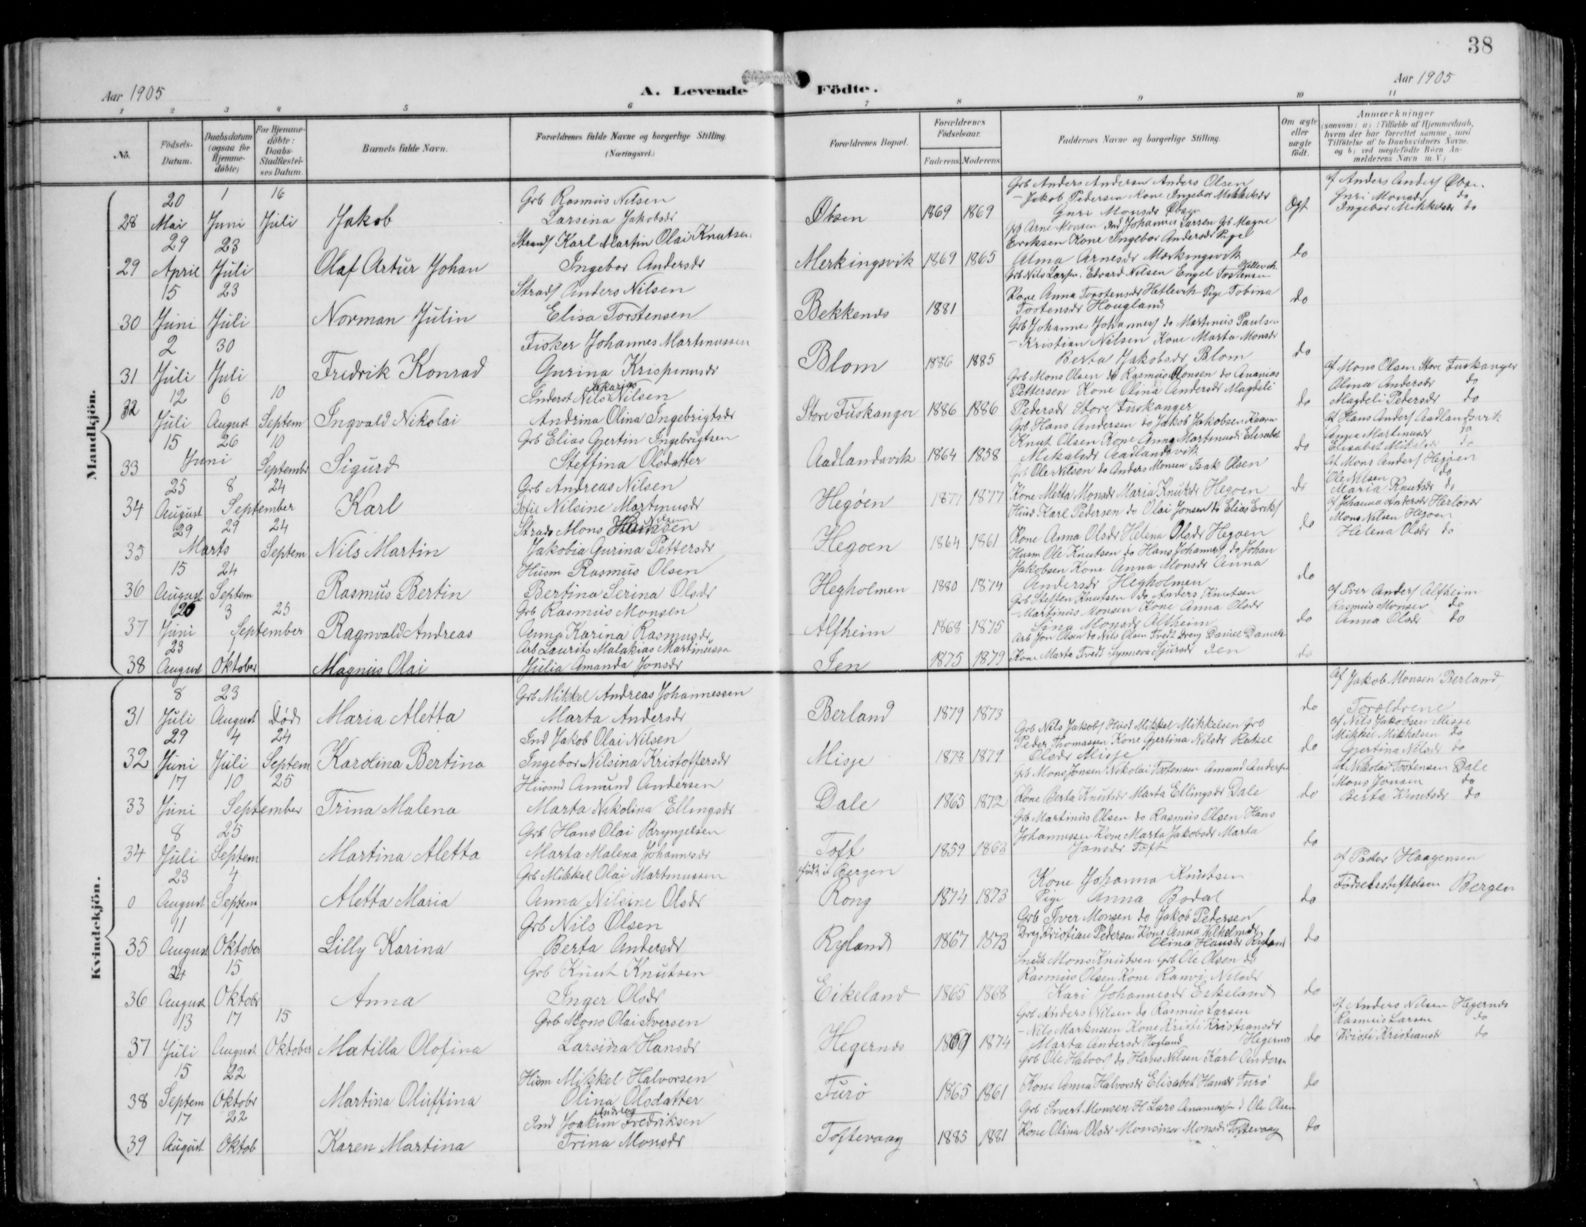 38
Aar 1905
A. Levende Födte.
Aar 1905
1 2 3 4 5 6 7 8 9 10 11
No.
Födsels-Datum.
Daabsdatum (ogsaa for Hjemme-döbte)
For Hjemme-döbte: Daabs-Stadfæstel-ses Datum.
Barnets fulde Navn.
Forældrenes fulde Navne og borgerlige Stilling. (Næringsvei.)
Forældrenes Bopæl.
Forældrenes Födselsaar.
Faderens. Moderens.
Faddernes Navne og borgerlige Stilling.
Om ægte eller uægte födt.
Anmærkninger
Mandkjön.
28 20 Mai 1 Juni 16 Juli Jakob
Grb Rasmus Nilsen
Larsina Jakobsdr
Øksen 1869 1869
Grb Anders Andersen Anders Olsen
Jakob Pedersen Kone Ingebor Mikkelsdr
Guri Monsdr Øksen
Ogt
af Anders Anders Øksn.
Guri Monsdr do
Ingebor Mikkelsdr do
29 29 April 23 Juli Olaf Artur Johan
Strands Karl Martin Olai Knutsen
Ingebor Andersdr
Merkingsvik 1869 1865
Eriksen Kone Ingebor Andersdr Pige
Alma Arnesdr Merkingsvik
do
30 15 Juni 23 Juli Norman Julin
Strads Anders Nilsen
Elisa Torstensen
Bekkenes 1881
Grb Nils Larsen Edvard Nilsen Engel Torstensen
Kone Anna Torstensdr Hetlevik Pige Tobina
Torstensdr Hougland
do
31 2 Juli 30 Juli Fredrik Konrad
Fisker Johannes Martinussen
Gurina Krispinusdr
Blom 1886 1885
Grb Johannes Johannes do Martinus Paulsen
Kristian Nilsen Kone Marta Monsdr
Berta Jakobsdr Blom
do
32 12 Juli 6 August 10 Septem Ingvald Nikolai
Inderst Nils Sakarias Nilsen
Andrina Olina Ingebrigtsdr
Store Fuskanger 1886 1886
Grb Mons Olsen do Rasmus Monsen do Ananias
Pettersen Kone Olina Andersdr Magdeli
Pedersdr Store Fuskanger
do
af Mons Olsen Store Fuskanger
Olina Andersdr do
Magdeli Pedersdr do
33 15 Juni 26 10 September Sigurd
Grb Elias Gjertin Ingebrigtsen
Steffina Olsdatter
Aadlandsvik 1864 1858
Grb Hans Andersen do Jakob Jakobsen
Knut Olsen Kone Anna Martinusdr Elisabet
Mikalsdr Aadlandsvik
do
af Hans Anders Aadlandsvik
Anna Martinusdr do
Elisabet Mikalsdr do
34 25 August 8 24 September Karl
Grb Andreas Nilsen
Sofie Nilsine Martinusdr
Hegöen 1871 1877
Grb Ole Nilsen do Anders Monsen Isak Olsen
Kone Metta Monsdr Maria Knutsdr Hegoen
do
af Mons Anders Hegöen
Ole Nilsen do
Maria Knutsdr do
35 29 Marts 29 24 Septem Nils Martin
Strads Mons Nilsen
Jakobia Gurina Pettersdr
Hegoen 1864 1861
Husd Karl Pedersen do Olai Jonsen do Elias Eriks
Kone Anna Olsdr Helena Olsdr Hegoen
do
Mons Nilsen Hegoen
Helena Olsdr do
36 15 August 24 Septem Rasmus Bertin
Husm Rasmus Olsen
Bertina Serina Olsdr
Hegholmen 1880 1874
Husm Ole Knutsen do Hans Johannes do Johan
Jakobsen Kone Anna Monsdr Anna
Andersdr Hegholmen
do
37 26 Juni 3 25 September Ragnvald Andreas
Grb Rasmus Monsen
Anna Karina Rasmusdr
Alfheim 1868 1875
Grb Steffen Knutsen do Anders Knutsen
Martinus Monsen Kone Anna Olsdr
Lina Monsdr Alfheim
do
af Iver Anders Alfheim
Rasmus Monsen do
Anna Olsdr do
38 23 August Oktober Magnus Olai
Arb Laurits Malakias Martinussen
Julia Amanda Jonsdr
Jen 1875 1879
Arb Jon Olsen do Nils Olsen Fredt Dreng Daniel Daniels
Kone Marta Fredt Synneva Sjursdr Jen
do
Kvindekjön.
31 8 Juli 23 August Död Maria Aletta
Grb Mikkel Andreas Johannessen
Marta Andersdr
Berland 1879 1873
do
af Jakob Monsen Berland
Foreldrene
32 29 Juni 4 Juli 24 Septem Karolina Bertina
Ind Jakob Olai Nilsen
Ingebor Nilsina Kristoffersdr
Misje 1878 1879
Grb Nils Jakobs Husd Mikkel Mikkelsen Grb
Peder Thomassen Kone Gjertina Nilsdr Rakel
Olsdr Misje
do
af Nils Jakobsen Misje
Mikkel Mikkelsen do
Gjertina Nilsdr do
33 17 Juni 10 25 September Trina Malena
Husmd Amund Andersen
Marta Nikolina Ellingsdr
Dale 1865 1872
Grb Mons Jonsen Nikolai Torstensen Amund Andersen
Kone Berta Knutsdr Marta Ellingsdr Dale
do
af Nikolai Torstensen Dale
Mons Jonsen do
Berta Knutsdr do
34 8 Juli 25 Septem Martina Aletta
Grb Hans Olai Brynjelsen
Marta Malena Johannesdr
Toft 1859 1863
Grb Martinus Olsen do Rasmus Olsen Hans
Johannessen Kone Marta Jakobsdr Marta
Jansdr Toft
do
0 23 August 4 Septem Aletta Maria
Grb Mikkel Olai Martinussen
Anna Nilsine Olsdr
födt i Bergen
Rong 1874 1873
Kone Johanna Knutsen
Pige Anna Bodal
do
af Pastor Haagensen
Fødselsstiftelsen Bergen
35 11 August 1 Oktober Lilly Karina
Grb Nils Olsen
Berta Andersdr
Ryland 1867 1873
Grb Iver Monsen do Jakob Pedersen
Dreng Kristian Pedersen Kone Anna Vilhelmsdr
Olina Hansdr Ryland
do
36 24 August 15 Oktobr Anna
Grb Knut Knutsen
Inger Olsdr
Eikeland 1865 1868
Mons Knutsen Grb Ole Olsen do
Rasmus Olsen Kone Ranvei Nilsdr
Kari Johannesdr Eikeland
do
37 13 Juli 17 August 15 Oktober Matilla Olofina
Grb Mons Olai Iversen
Larsina Hansdr
Hegernes 1869 1874
Grb Anders Nilsen do Rasmus Larsen
Nils Markussen Kone Kristi Kristiansdr
Marta Andersdr Hegland Hegernes
do
af Anders Nilsen Hegernes
Rasmus Larsen do
Kristi Kristiansdr do
38 15 Septem 22 Oktobr Martina Oluffina
Husm Mikkel Halvorsen
Olina Olsdatter
Turö 1865 1861
Grb Ole Halvors do Hans Nilsen Karl Andersen
Kone Anna Halvorsdr Elisabet Hansdr Turö
do
39 17 August 22 Oktob Karen Martina
Ind Joakim Andreas Fredriksen
Trina Monsdr
Toftevaag 1885 1881
Grb Sivert Monsen H Lars Ananiassen d Ole Olsen
Kone Olina Olsdr Monsina Monsdr Toftevaag
do